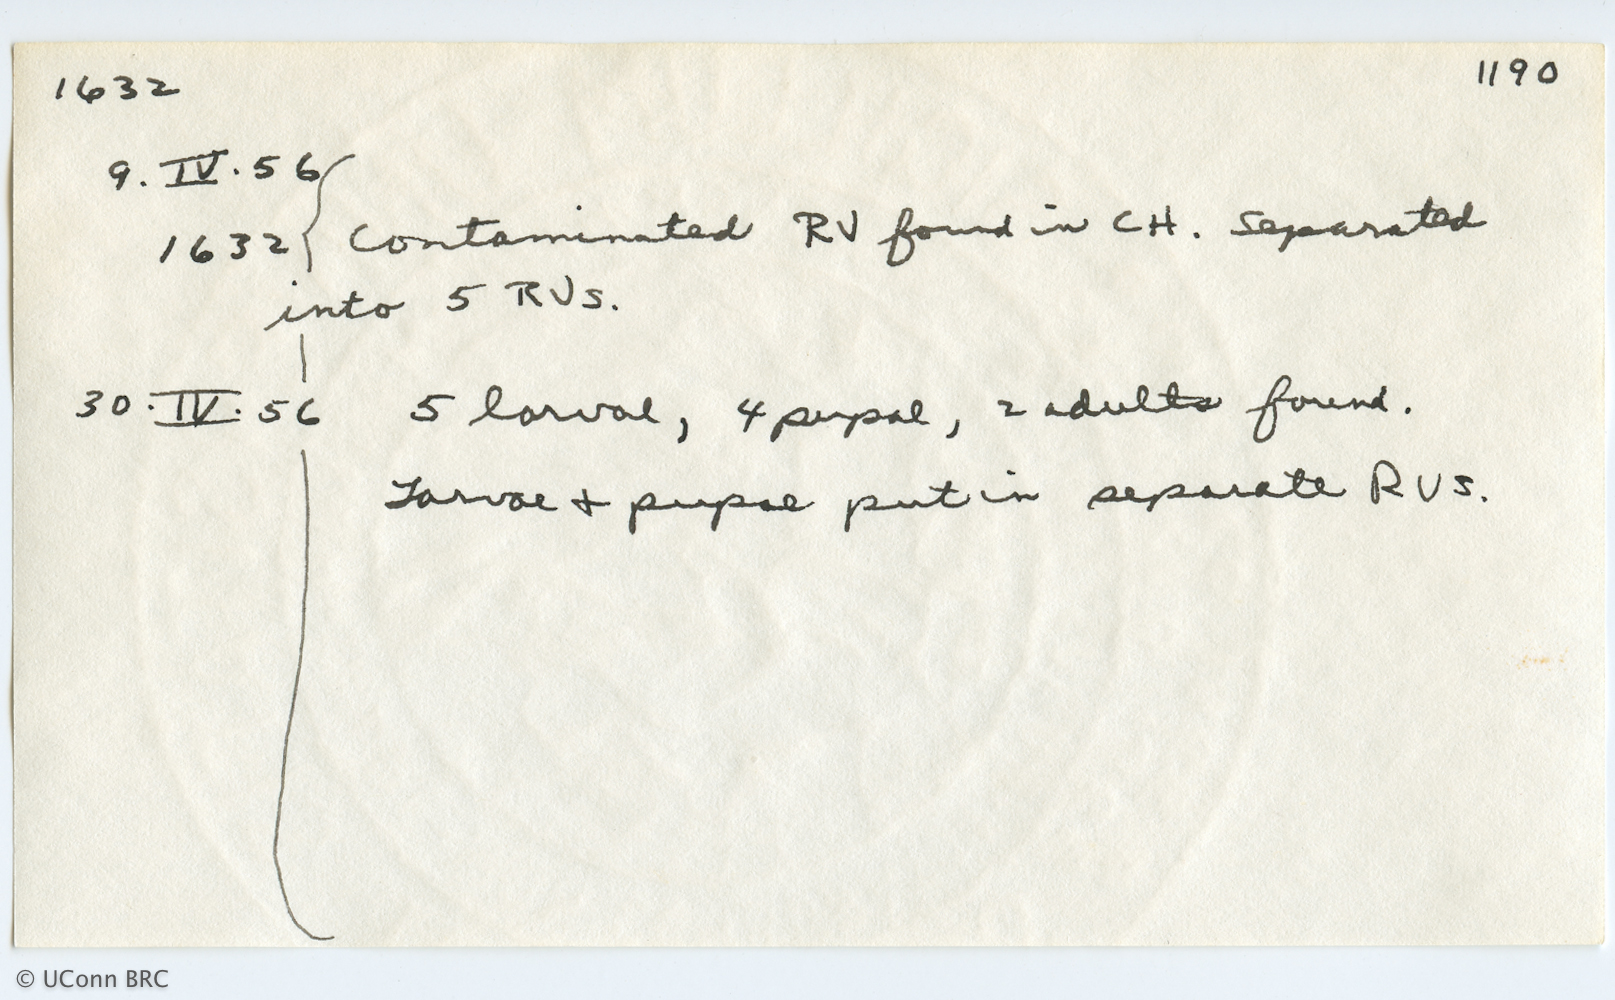 1632 1190
9.IV.56
1632 Contaminated RV found in CH. Separated
into 5 RVs.
30.IV.56 5 larvae, 4 pupae, 2 adults found.
Larvae + pupae put in separate RVs.
© UConn BRC